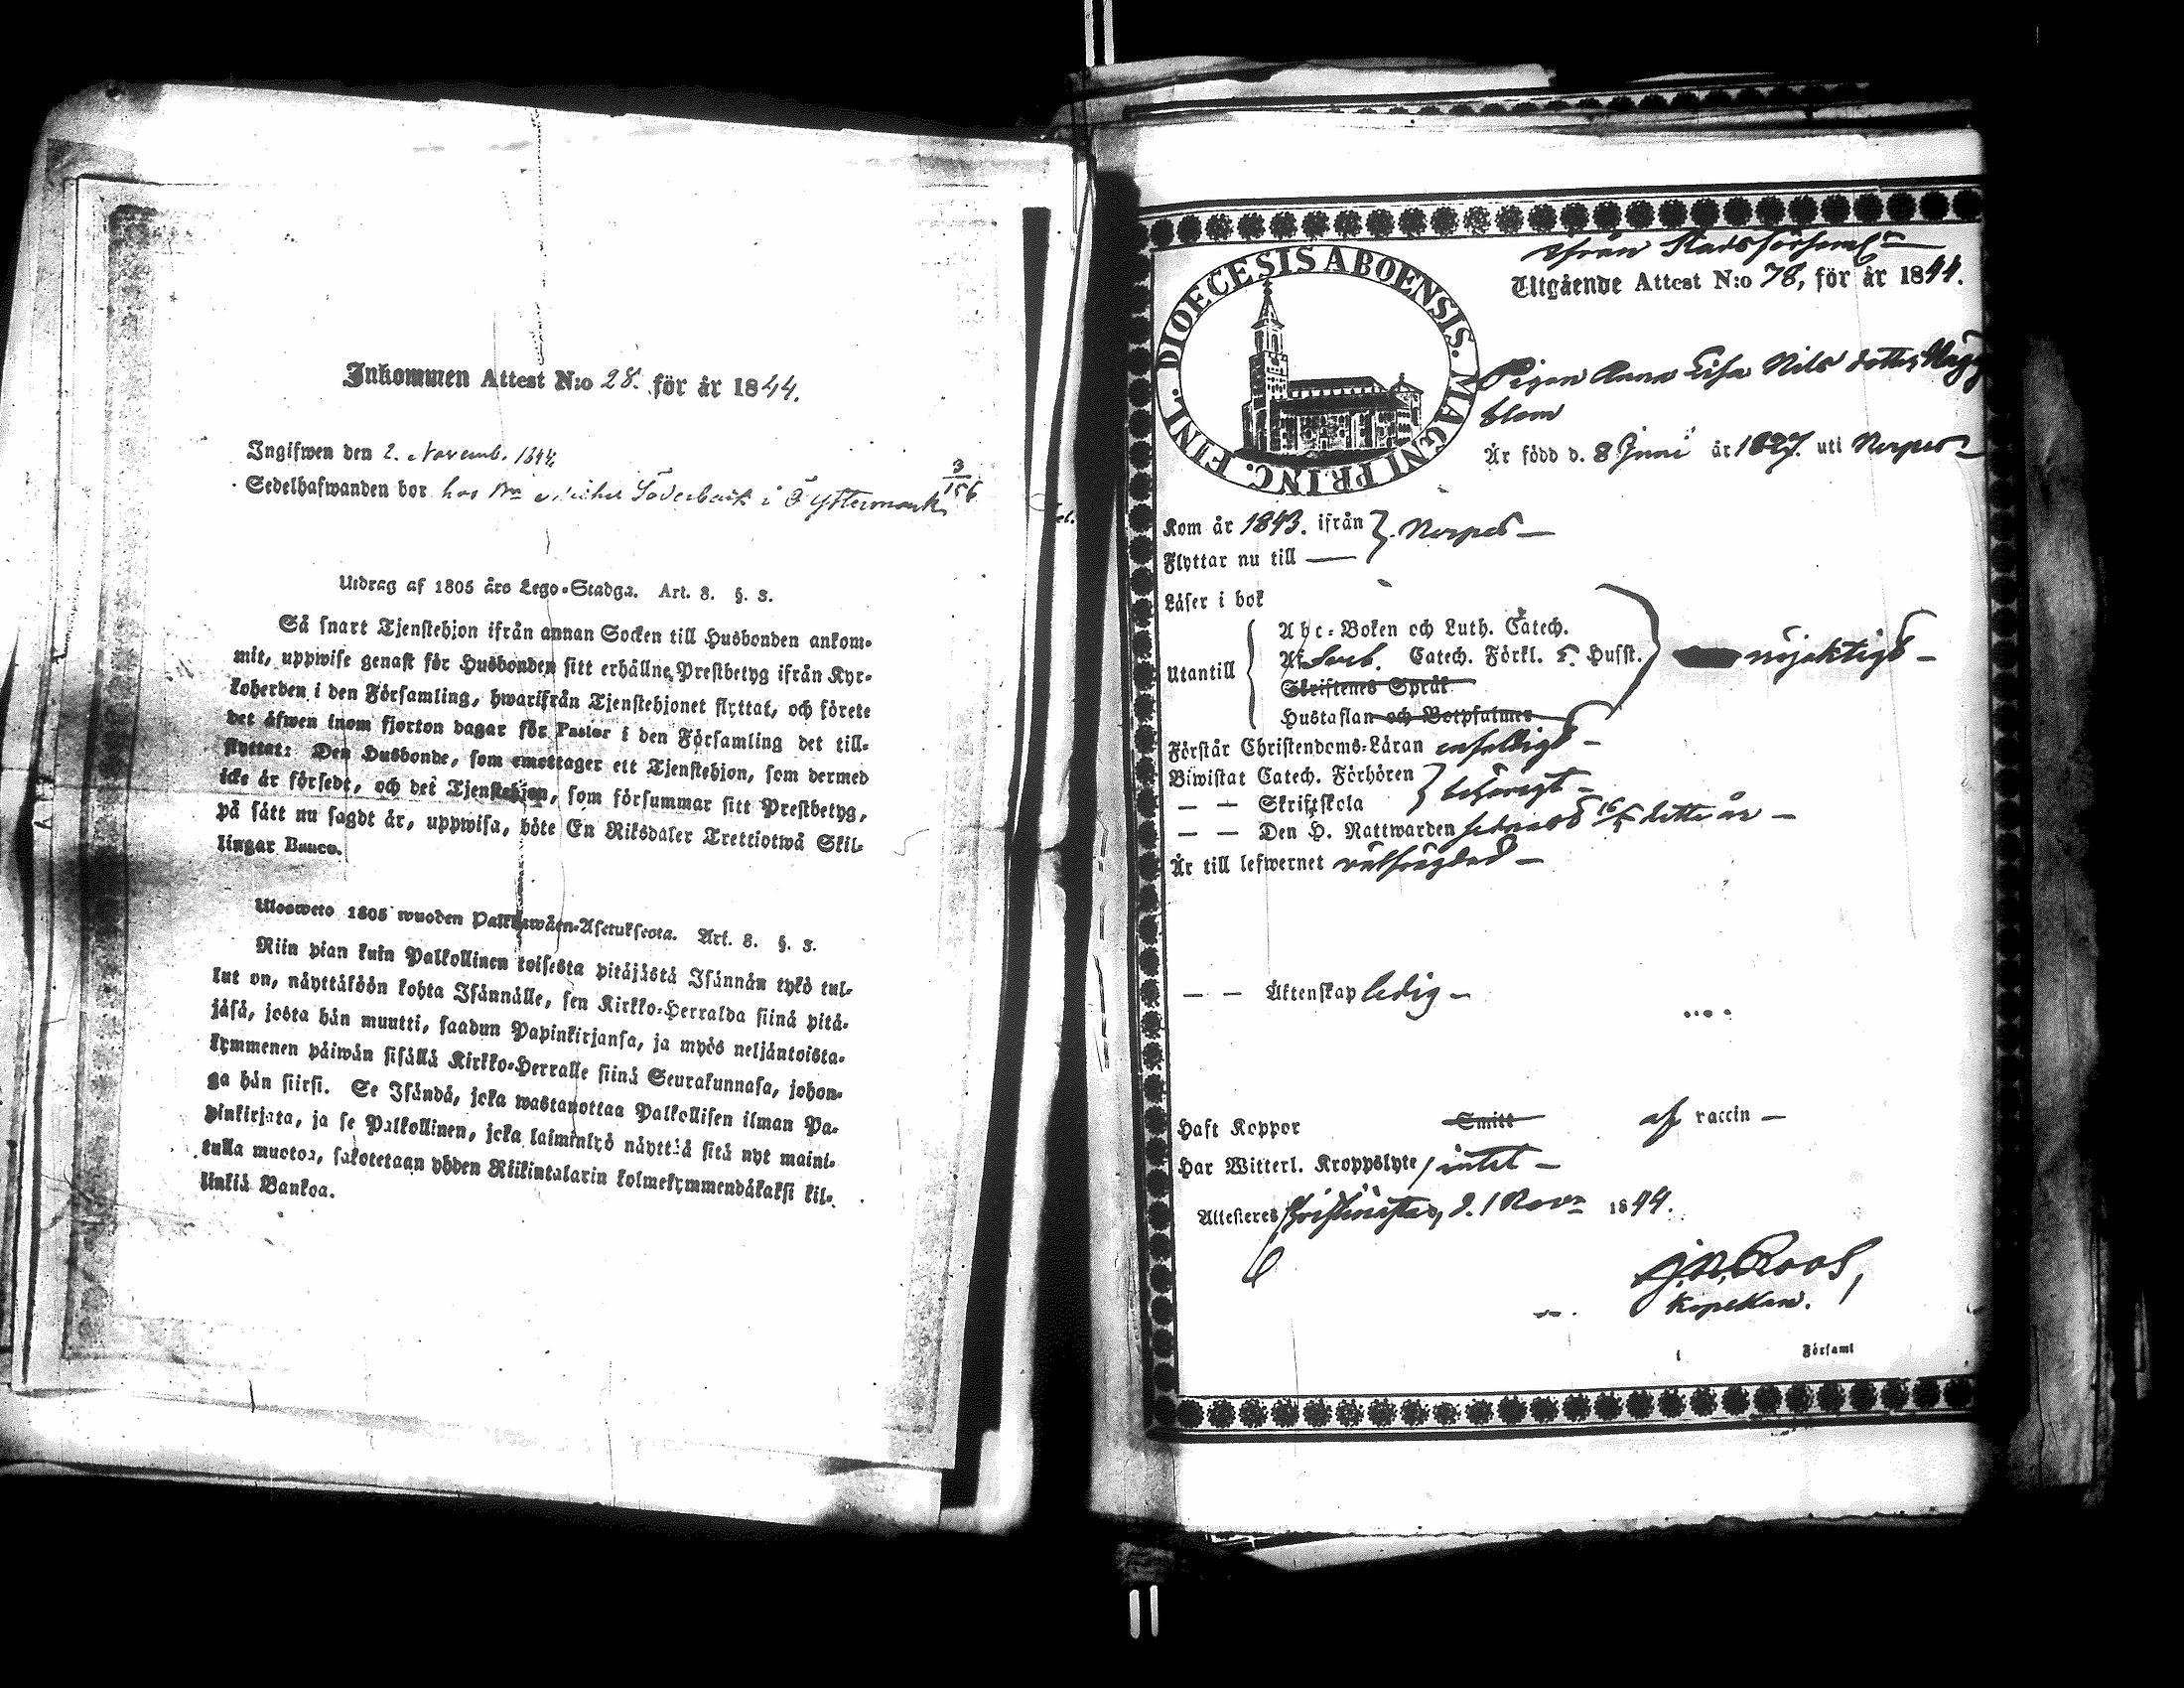 Inkommen Attest N:o 28. för år 1844.
Ingifwen den 2. Novemb. 1844.
Sedelhafwanden bor hos Söderback i Östermark
3/156
Utdrag af 1805 års Lego-Stadga. Art. 8. §. 3.
Så snart Tjenstehjon ifrån annan Socken till Husbonden ankom-
mit, uppwise genast för Husbonden sitt erhållne Prestbetyg ifrån Kyr-
koherden i den Församling, hwarifrån Tjenstehjonet flyttat, och förete
det äfwen inom fjorton dagar för Pastor i den Församling det till-
flyttat: Den Husbonde, som emottager ett Tjenstehjon, som dermed
icke är försedt, och det Tjenstehjon, som försummar sitt Prestbetyg,
på sätt nu sagdt är, uppwisa, böte En Riksdaler Trettiotwå Skil-
lingar Banco.
Ulosweto 1805 wuoden Palkkawäen-Asetuksesta. Art. 8. §. 3.
Niin pian kuin Palkollinen toisesta pitäjästä Isännän tykö tul-
lut on, näyttäköön kohta Isännälle, sen Kirkko-Herralda siinä pitä-
jäsä, josta hän muutti, saadun Papinkirjansa, ja myös neljäntoista-
kymmenen päiwän sisällä Kirkko-Herralle siinä Seurakunnasa, johon-
ga hän siirsi. Se Isändä, joka wastanottaa Palkollisen ilman Pa-
pinkirjata, ja se Palkollinen, joka laiminlyö näyttää sitä nyt maini-
tulla muotoa, sakotetaan yhden Riikintalarin kolmekymmendäkaksi kil-
linkiä Bankoa.
DIOECESIS ABOENSIS. MAGNI PRINC. FINL.
ifrån Stadsförsaml:n
Utgående Attest N:o 78, för år 1844.
Pigan Anna Lisa Nils dotter Hägg
blom
Är född d. 8 Juni år 1827. uti Nerpes
Kom år 1843. ifrån } Nerpes —
Flyttar nu till —
Läser i bok
Abc-Boken och Luth. Catech.
Utantill { Af Sveb. Catech. Förkl. Husst. } nöjaktigt —
Skriftenes Språk
Hustaflan och Botpsalmer
Förstår Christendoms-Läran enfaldigt —
Biwistat Catech. Förhören } behörigt —
— — Skriftskola
— — Den H. Nattwarden sednast 16/5 detta år —
Är till lefwernet välfrägdad —
— — Äktenskap ledig —
Haft Koppor Smitt af vaccin —
Har Witterl. Kroppslyte, intet —
Attesteres Christinestad, d. 1 Nov: 1844.
J. N. Roos,
Kapellan.
Församl